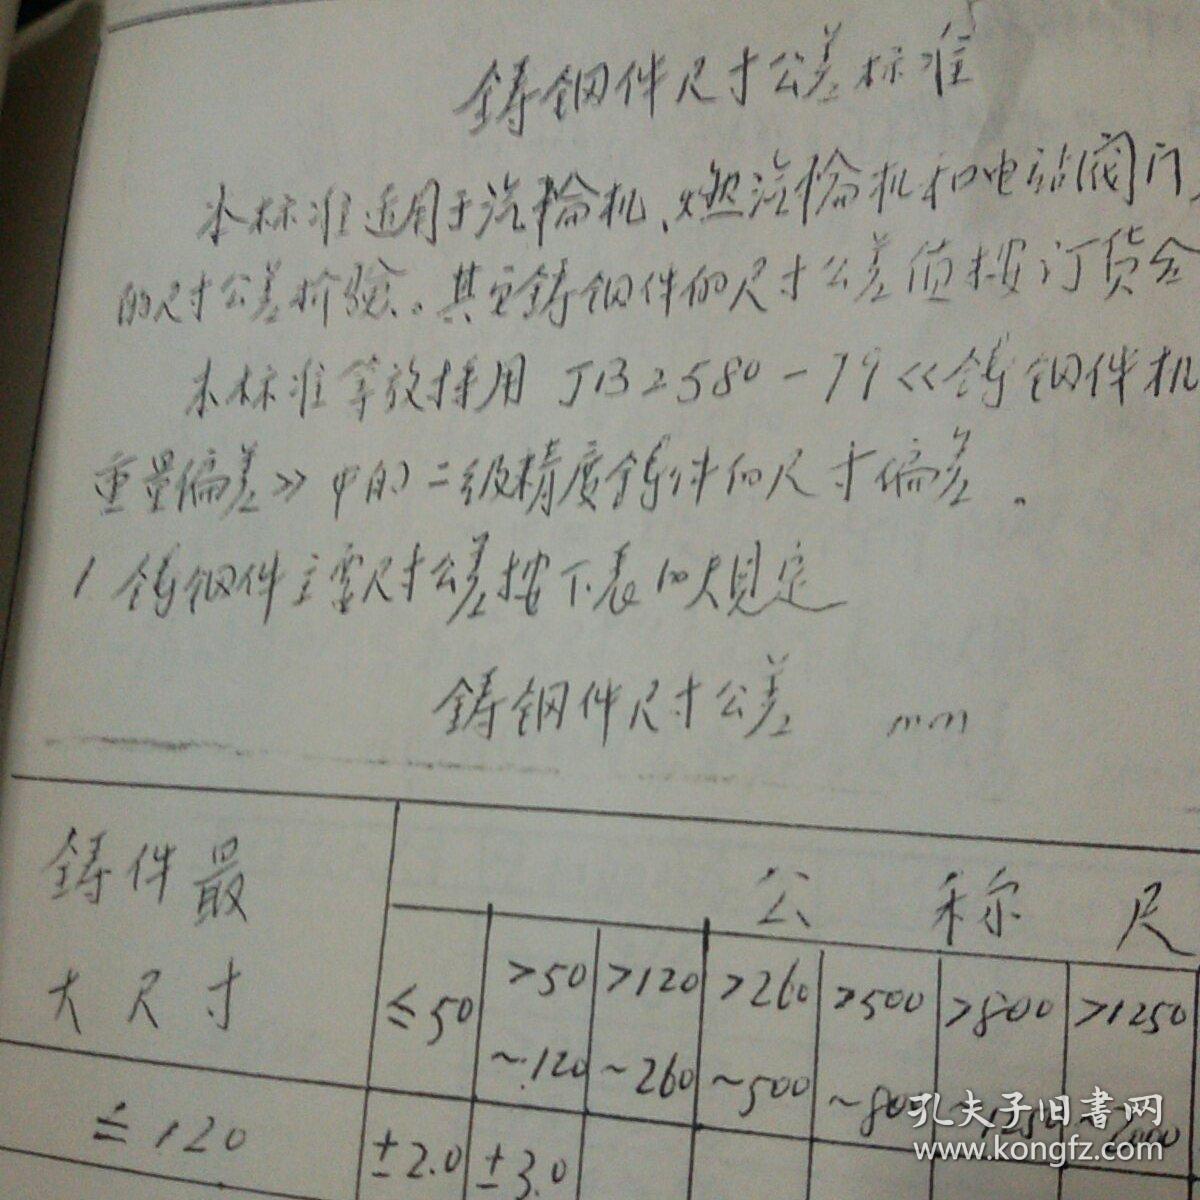 铸钢件尺寸公差标准
本标准适用于汽轮机、燃汽轮机和电站阀门
的尺寸公差检验。其它铸钢件的尺寸公差值按订货合
本标准等效采用 JB2580-79《铸钢件机
重量偏差》中的二级精度铸件的尺寸偏差。
1 铸钢件主要尺寸公差按下表的规定
铸钢件尺寸公差 mm
铸件最
大尺寸
公称尺
≤50 >50 >120 >260 >500 >800 >1250
~120 ~260 ~500 ~800 ~1250 ~2000
≤120 ±2.0 ±3.0
孔夫子旧书网
www.kongfz.com